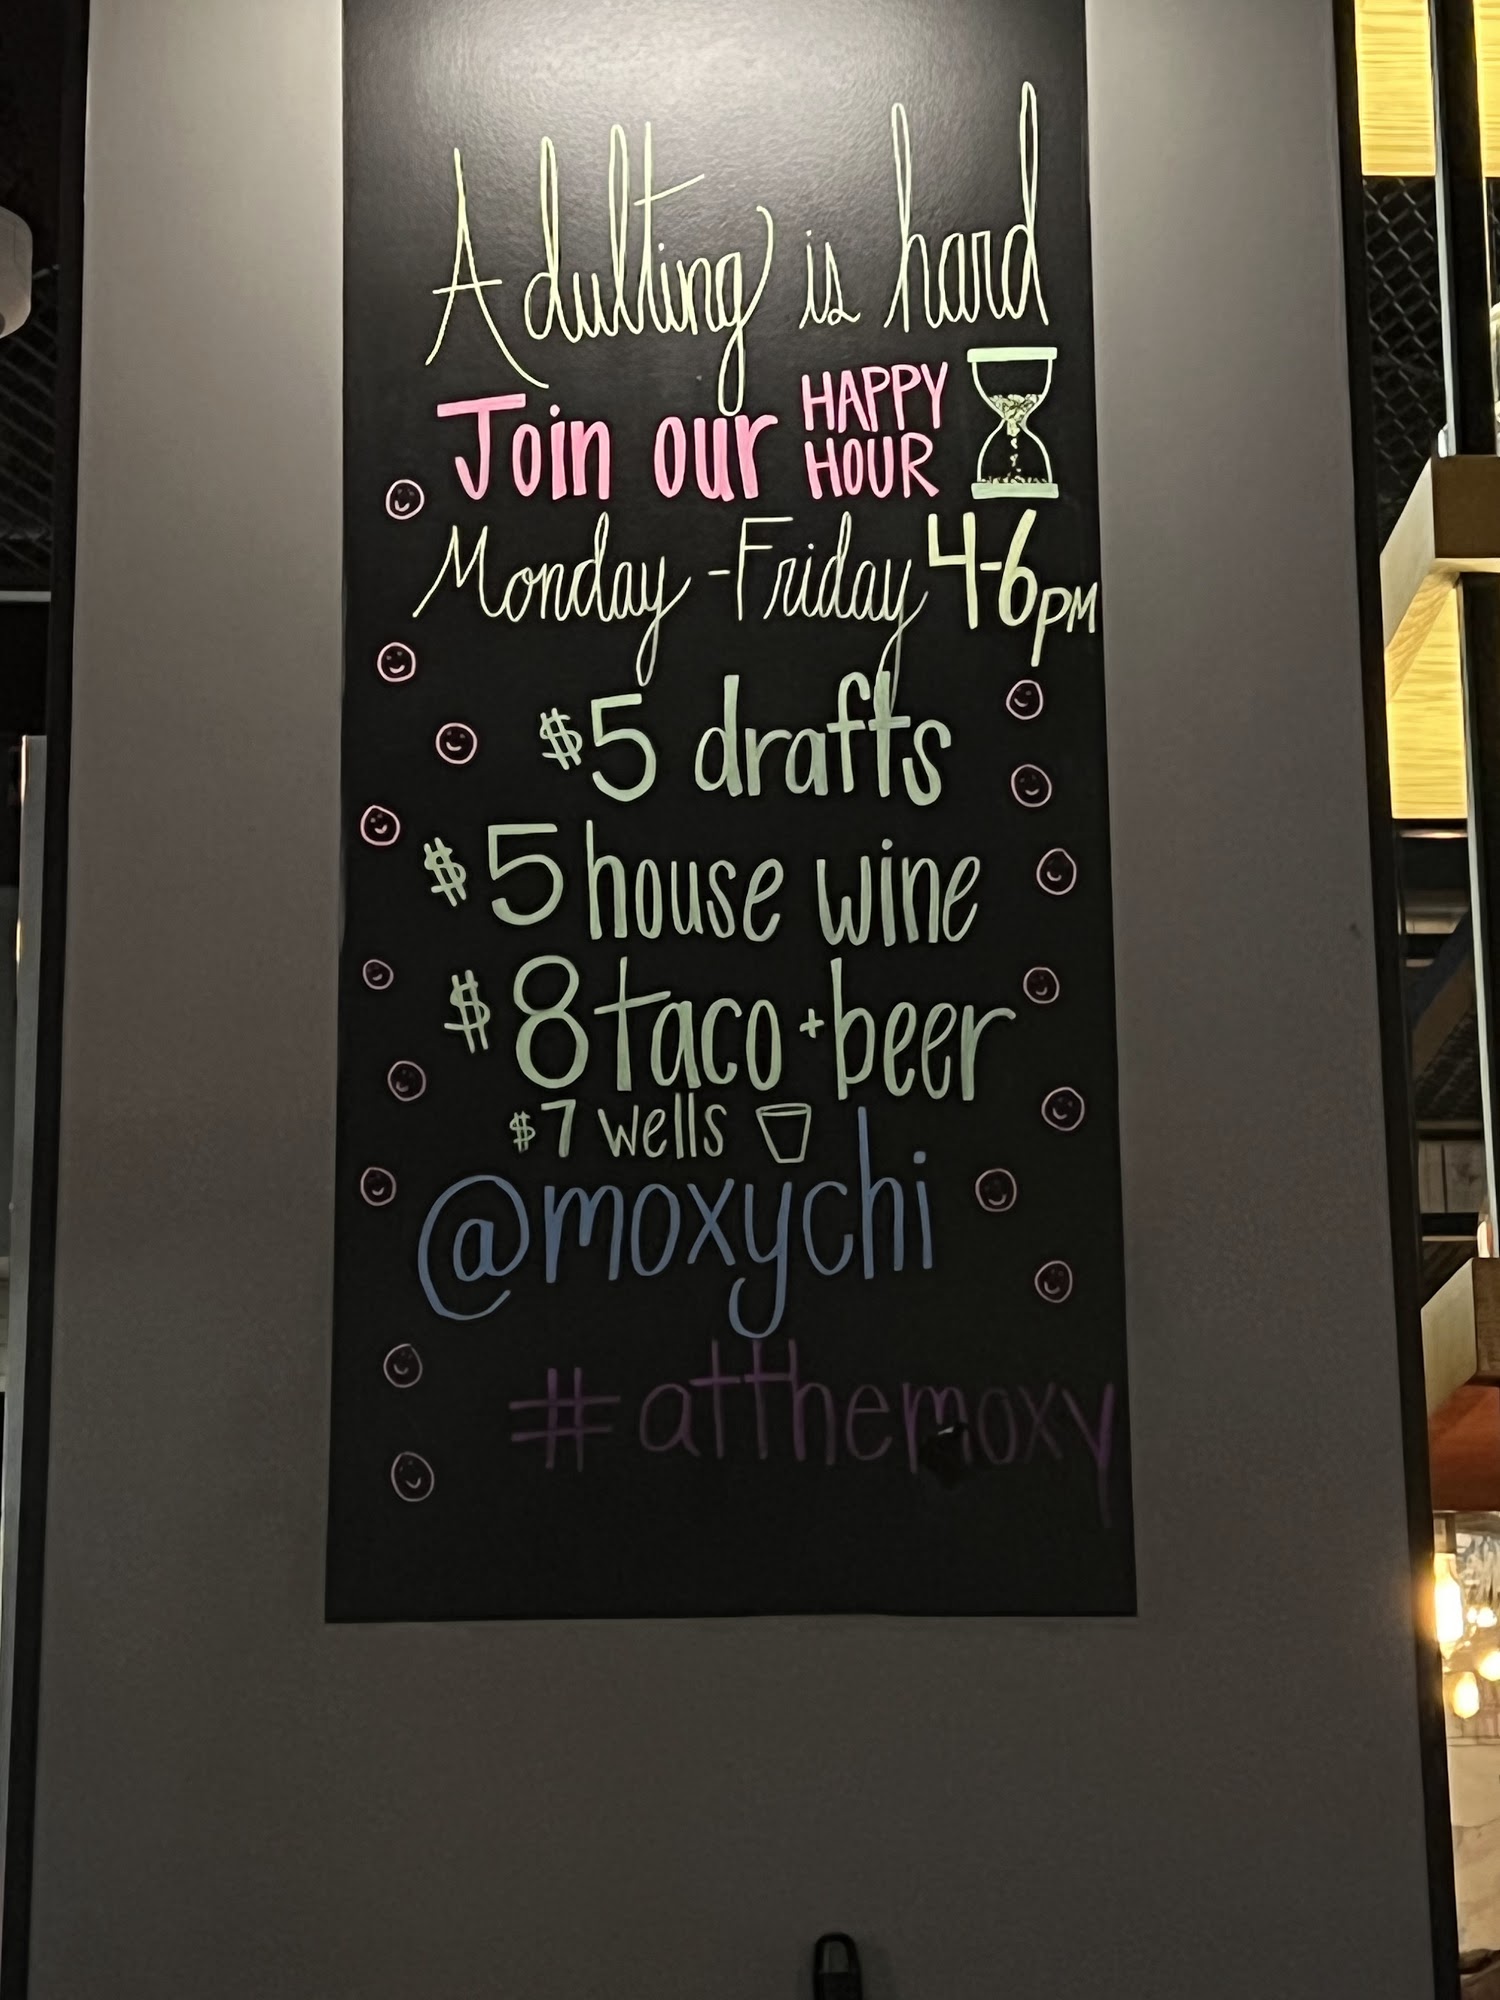 Adulting is hard
Join our HAPPY HOUR
Monday - Friday 4-6PM
$5 drafts
$5 house wine
$8 taco + beer
$7 wells
@moxychi
#atthemoxy